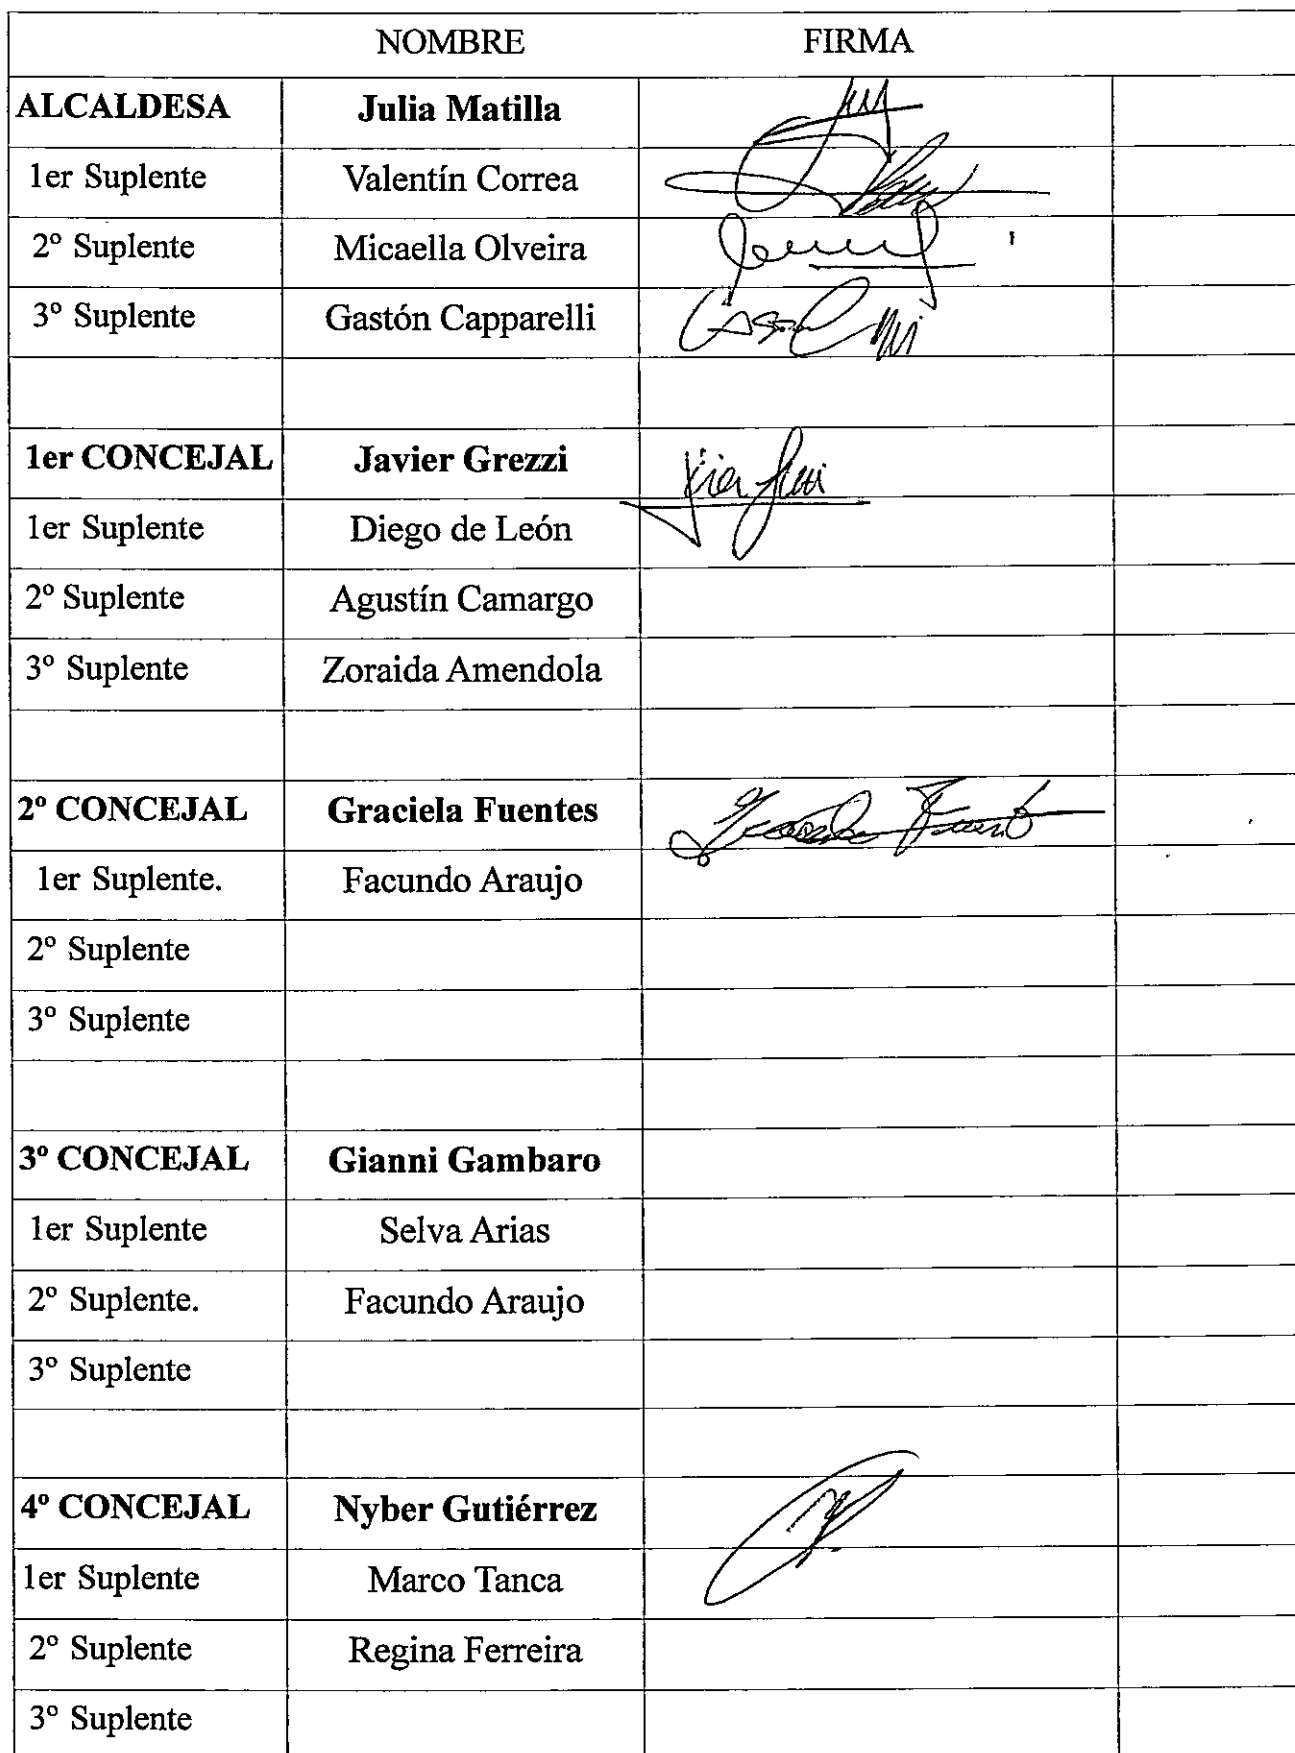 NOMBRE FIRMA
ALCALDESA Julia Matilla
1er Suplente Valentín Correa
2º Suplente Micaella Olveira
3º Suplente Gastón Capparelli
1er CONCEJAL Javier Grezzi
1er Suplente Diego de León
2º Suplente Agustín Camargo
3º Suplente Zoraida Amendola
2º CONCEJAL Graciela Fuentes
1er Suplente. Facundo Araujo
2º Suplente
3º Suplente
3º CONCEJAL Gianni Gambaro
1er Suplente Selva Arias
2º Suplente. Facundo Araujo
3º Suplente
4º CONCEJAL Nyber Gutiérrez
1er Suplente Marco Tanca
2º Suplente Regina Ferreira
3º Suplente